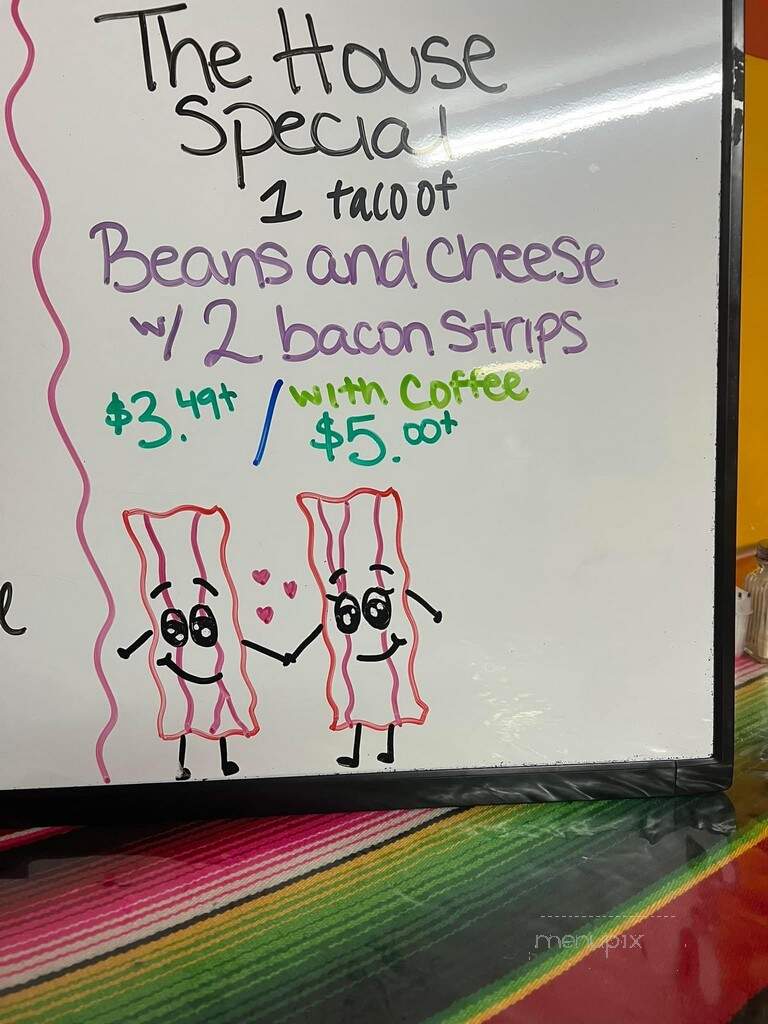 The House
Special
1 taco of
Beans and cheese
w/ 2 bacon strips
$3.49+ / with coffee
$5.00+
menupix